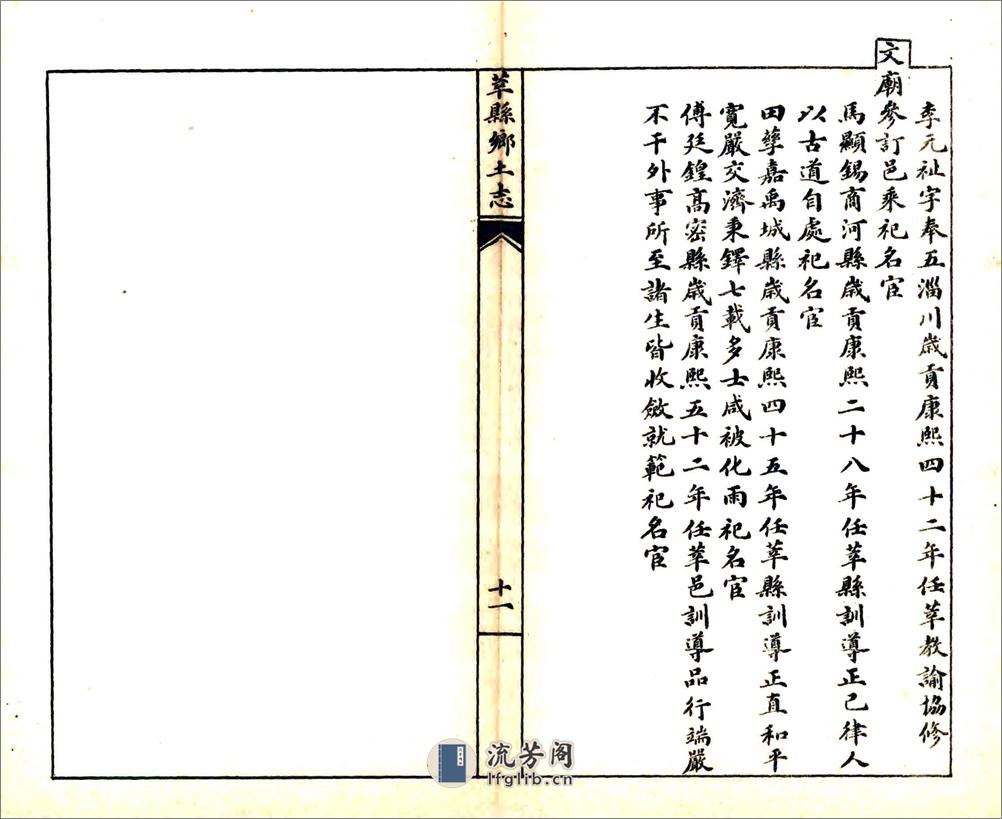 李元祉字奉五淄川歲貢康熙四十二年任莘教諭協修
文廟參訂邑乘祀名宦
馬顯錫商河縣歲貢康熙二十八年任莘縣訓導正己律人
以古道自處祀名宦
田孳嘉禹城縣歲貢康熙四十五年任莘縣訓導正直和平
寬嚴交濟秉鐸七載多士咸被化雨祀名宦
傅廷鍠高密縣歲貢康熙五十二年任莘邑訓導品行端嚴
不干外事所至諸生皆收斂就範祀名宦
莘縣鄉土志
十一
流芳阁
lfglib.cn